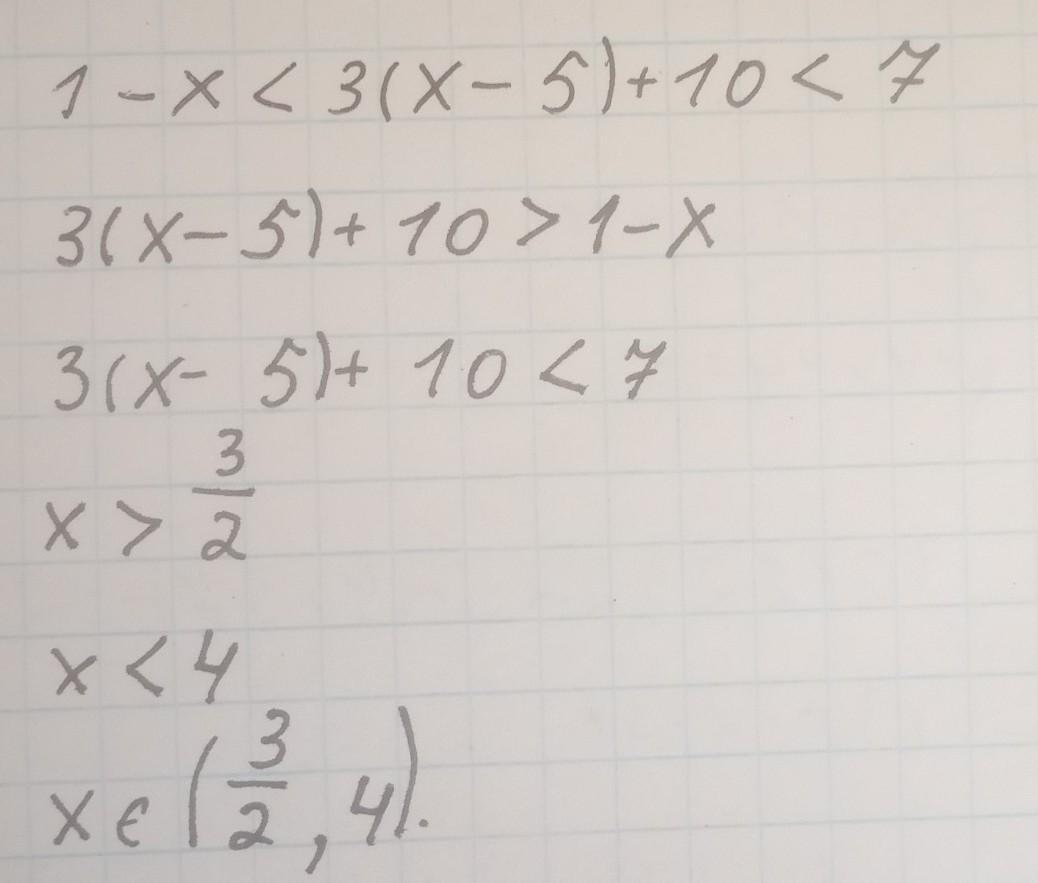 1 - x < 3(x - 5) + 10 < 7
3(x - 5) + 10 > 1 - x
3(x - 5) + 10 < 7
x > 3/2
x < 4
x ∈ (3/2, 4).